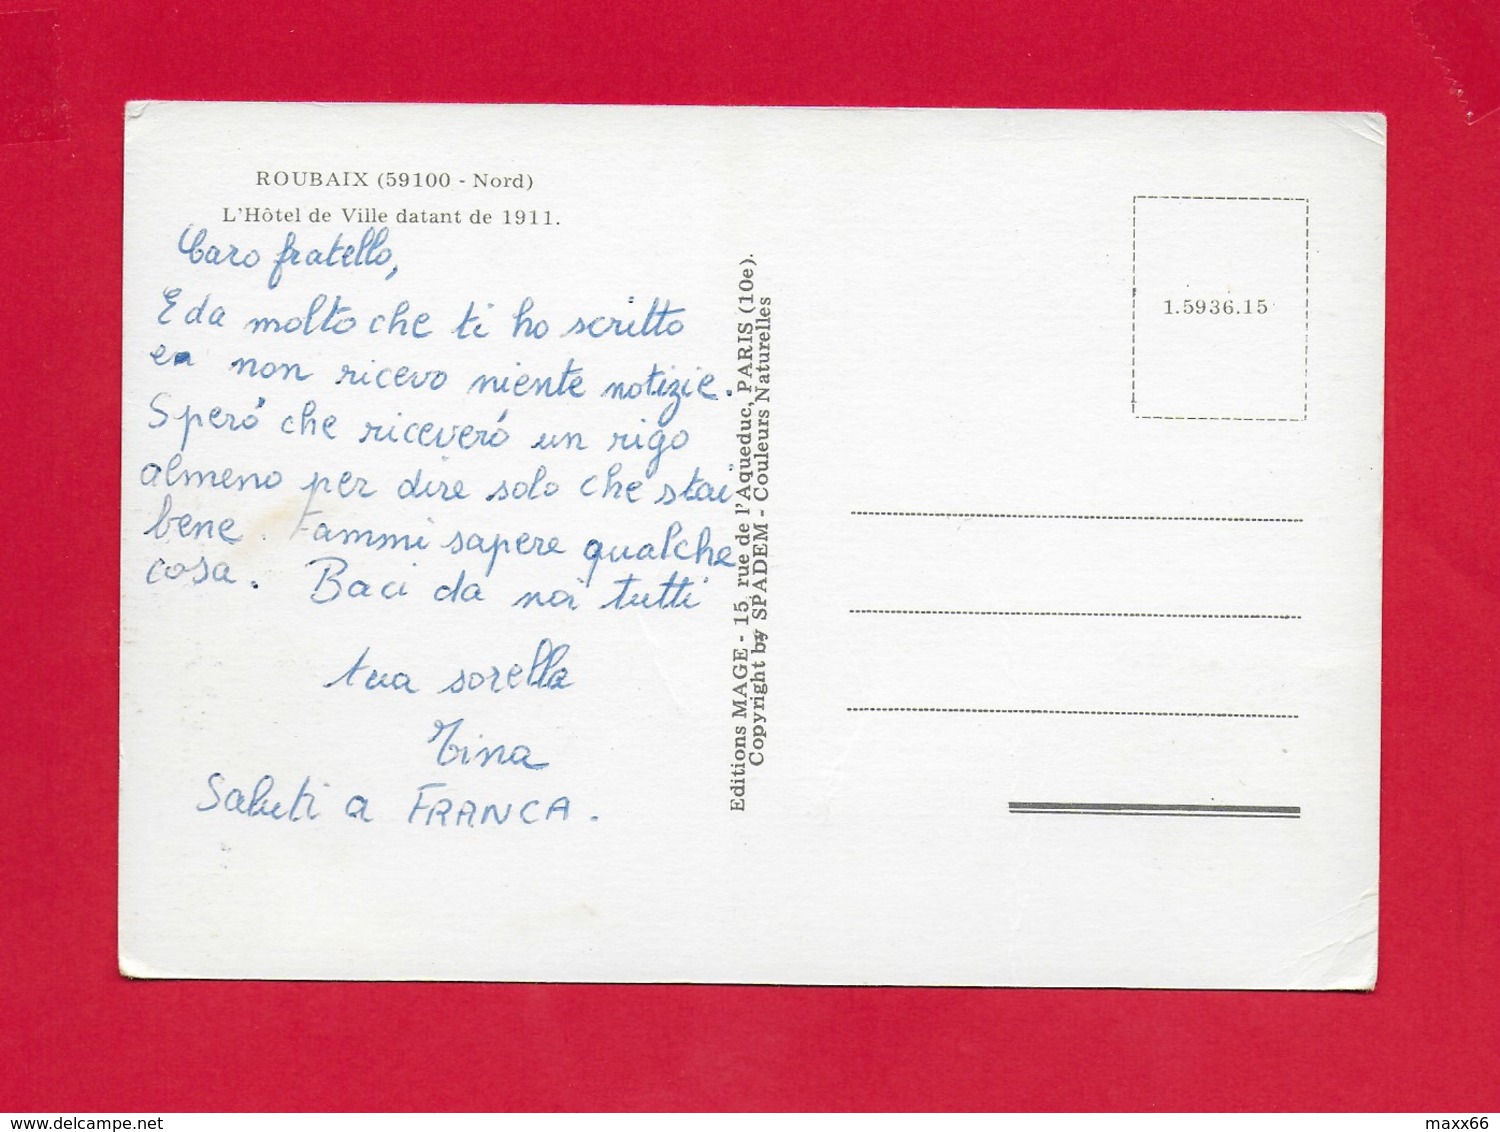 ROUBAIX (59100 - Nord)
L'Hôtel de Ville datant de 1911.
Caro fratello,
E da molto che ti ho scritto
e non ricevo niente notizie.
Speró che riceveró un rigo
almeno per dire solo che stai
bene. Fammi sapere qualche
cosa. Baci da noi tutti
tua sorella
Tina
Saluti a FRANCA.
Editions MAGE - 15, rue de l'Aqueduc, PARIS (10e).
Copyright by SPADEM - Couleurs Naturelles
1.5936.15
delcampe.net
maxx66